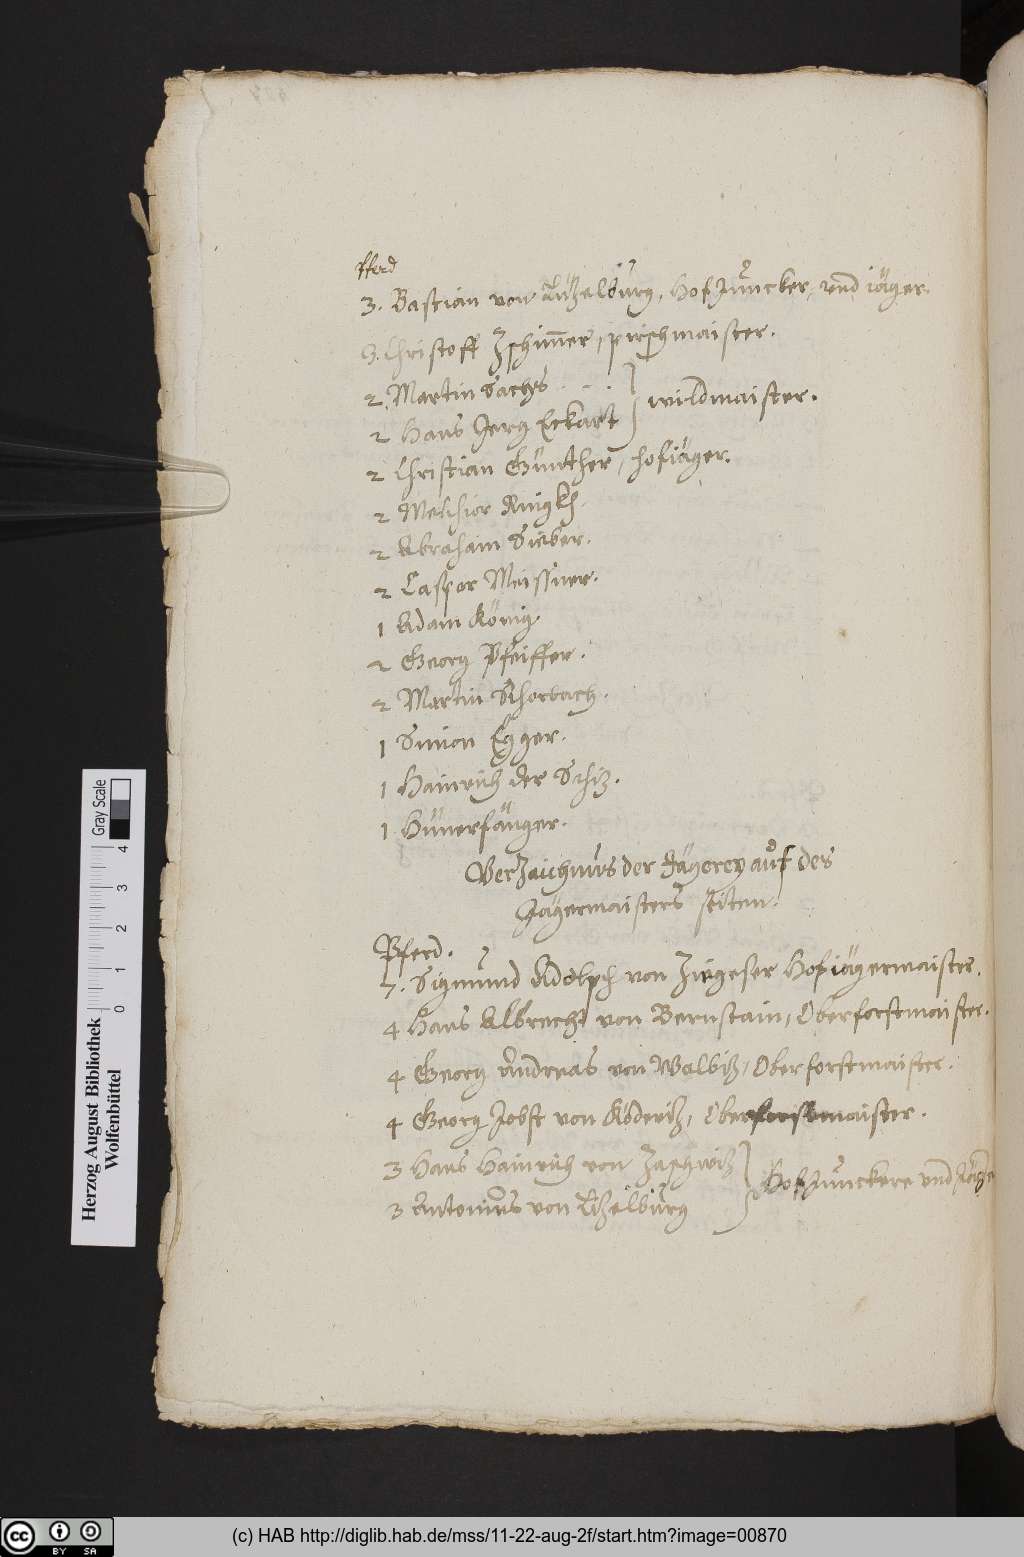 Pferd
3. Bastian von Lüzelburg, Hof Juncker, und jäger.
3. Christoff Zschimmer, pirschmaister.
2. Martin Sachs . - . } wildmaister.
2 Hans Jerg Eckart
2 Christian Günther, hofjäger.
2 Melchior Ringkh
2 Abraham Sieber.
2 Caspar Meissner.
1 Adam König.
2 Georg Pfeiffer.
2 Martin Schorbach.
1 Simon Egger.
1 Hainrich der Schiz.
1 Hünerfänger.
Verzaichnus der Jägerey auf des
Jägermaisters seiten.
Pferd.
7. Sigmund Adolph von Zigeser Hofjägermaister.
4 Hans Albrecht von Bernstain, Oberforstmaister.
4 Georg Andreas von Walbiz, Oberforstmaister.
4 Georg Jobst von Köderiz, Oberforstmaister.
3 Hans Hainrich von Zaschwiz } Hof Junckere und Jäge
3 Antonius von Lüzelburg
Herzog August Bibliothek
Wolfenbüttel
0 1 2 3 4 Gray Scale
cc BY SA
(c) HAB http://diglib.hab.de/mss/11-22-aug-2f/start.htm?image=00870